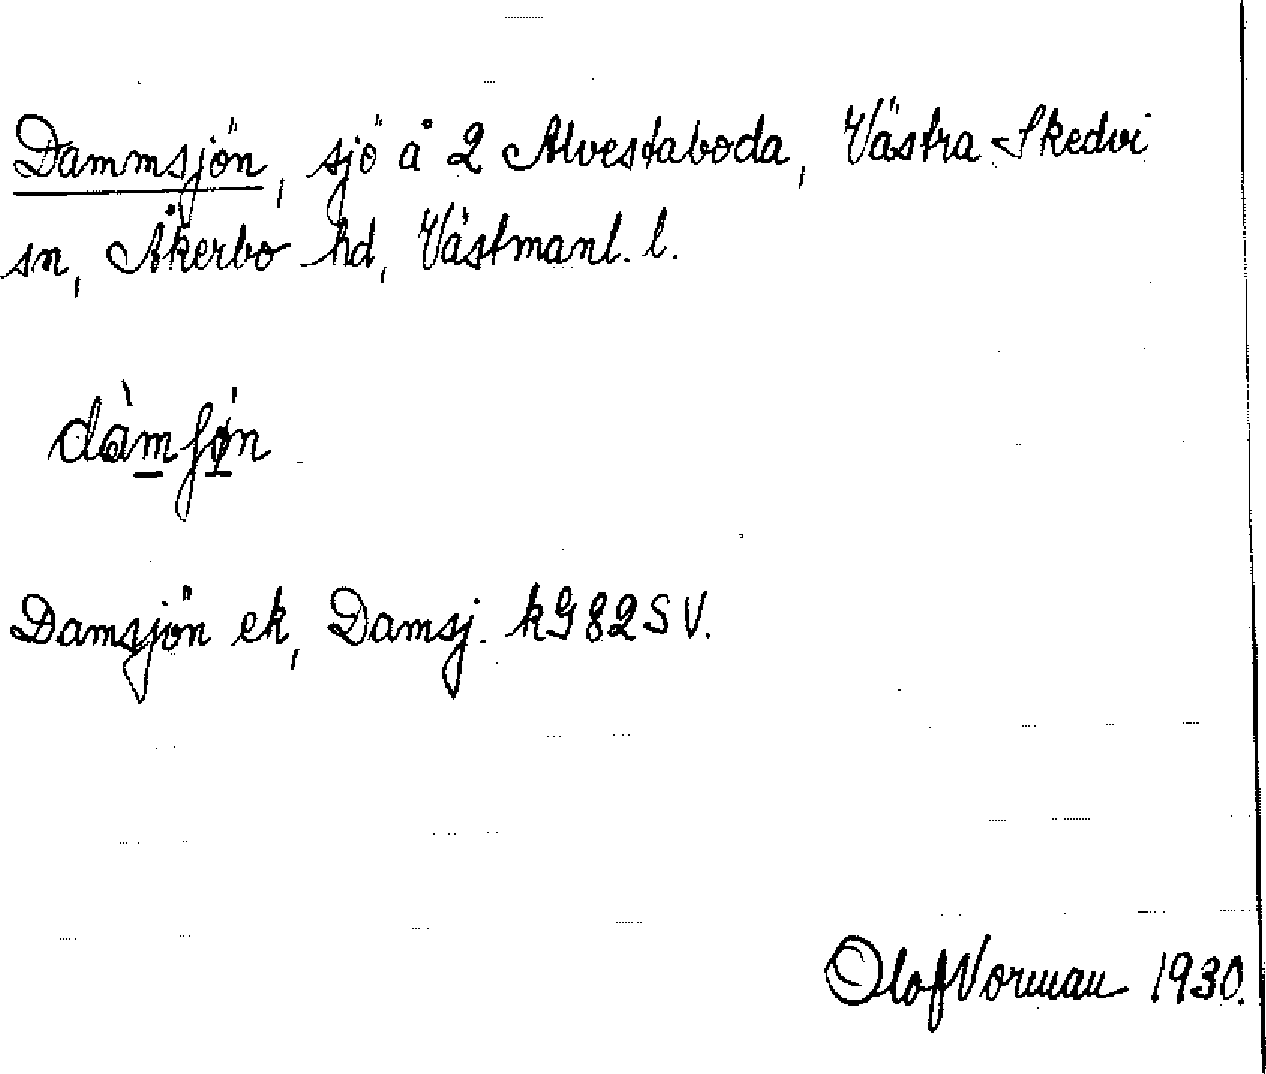 Dammsjön, sjö å 2 Alvestaboda, Västra Skedvi
sn, Åkerbo hd, Västmanl. l.
dàmʃø̀n
Damsjön ek, Damsj. kG82SV.
Olof Vorman 1930.